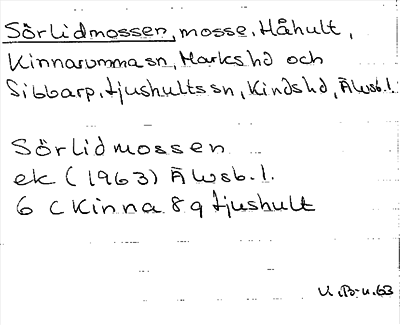 Sörlidmossen, mosse, Håhult,
Kinnarumma sn, Marks hd och
Sibbarp, Ljushults sn, Kinds hd, Älvsb. l.
Sörlidmossen
ek (1963) Älvsb. l.
6 C Kinna 8 9 Ljushult